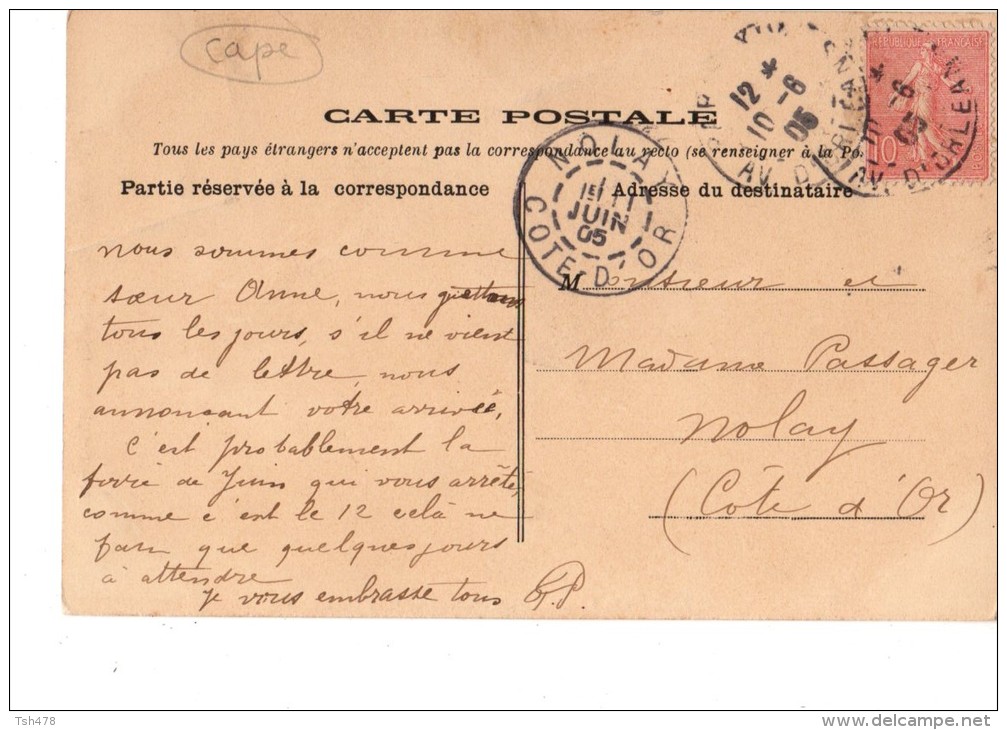 cape
CARTE POSTALE
Tous les pays étrangers n'acceptent pas la correspondance au recto (se renseigner à la Po
Partie réservée à la correspondance
nous sommes comme
sœur Anne, nous guettons
tous les jours, s'il ne vient
pas de lettre, nous
annonçant votre arrivée,
C'est probablement la
foire de Juin qui vous arrête,
comme c'est le 12 celà ne
fait que quelques jours
à attendre
je vous embrasse tous G.P.
Adresse du destinataire
Monsieur et
Madame Passager
Nolay
(Côte d'Or)
NOLAY
11
JUIN
05
COTE-D'OR
12 *
10 -6
05
AV. D'ORLEANS
REPUBLIQUE FRANÇAISE
10
-6
05
AV. D'ORLEANS
Tsh478
www.delcampe.net